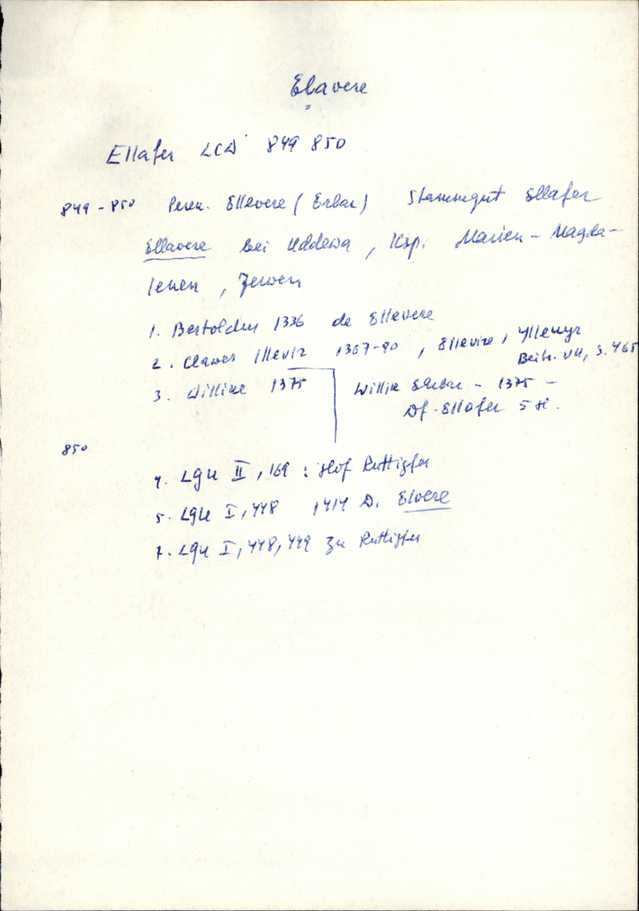 Elavere
Ellafer LCD 849 850
849-850 Pers. Ellevere (Erbar) Stammgut Ellafer
Ellavere bei Uddewa, Ksp. Marien-Magda-
lenen, Jerwen
1. Bertoldus 1336 de Ellevere
2. Clawes Illeviz 1367-90, Ellevire, Yllenyz
Beitr. VII, S. 465
3. Willike 1375
Willik Elrbar - 1375 -
Df. Ellafer 5 H.
850
4. LGU II, 169 : Hof Ruttigfer
5. LGU I, 448 1414 D. Elvere
7. LGU I, 448, 449 zu Ruttigfer